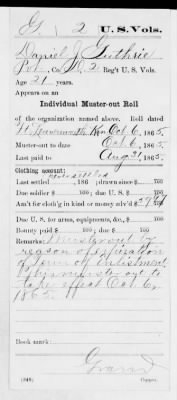 G 2 U.S. Vols.
Daniel J. Guthrie
Pvt, Co. D, 2 Reg't U. S. Vols.
Age 21 years.
Appears on an
Individual Muster-out Roll
of the organization named above. Roll dated
Ft. Leavenworth Kan Oct. 6, 1865.
Muster-out to date Oct. 6, 1865.
Last paid to Aug 31, 1865.
Clothing account:
Last settled , 186 ; drawn since $ 100
Due soldier $ 100 ; due U. S. $ 100
Am't for cloth'g in kind or money adv'd $ 100
Due U. S. for arms, equipments, &c., $ 100
Bounty paid $ 100 ; due $ 100
Remarks: Muster out by
reason of expiration
of term of enlistment
muster out to
take effect Oct. 6,
1865.
Book mark:
(948) Copyist.